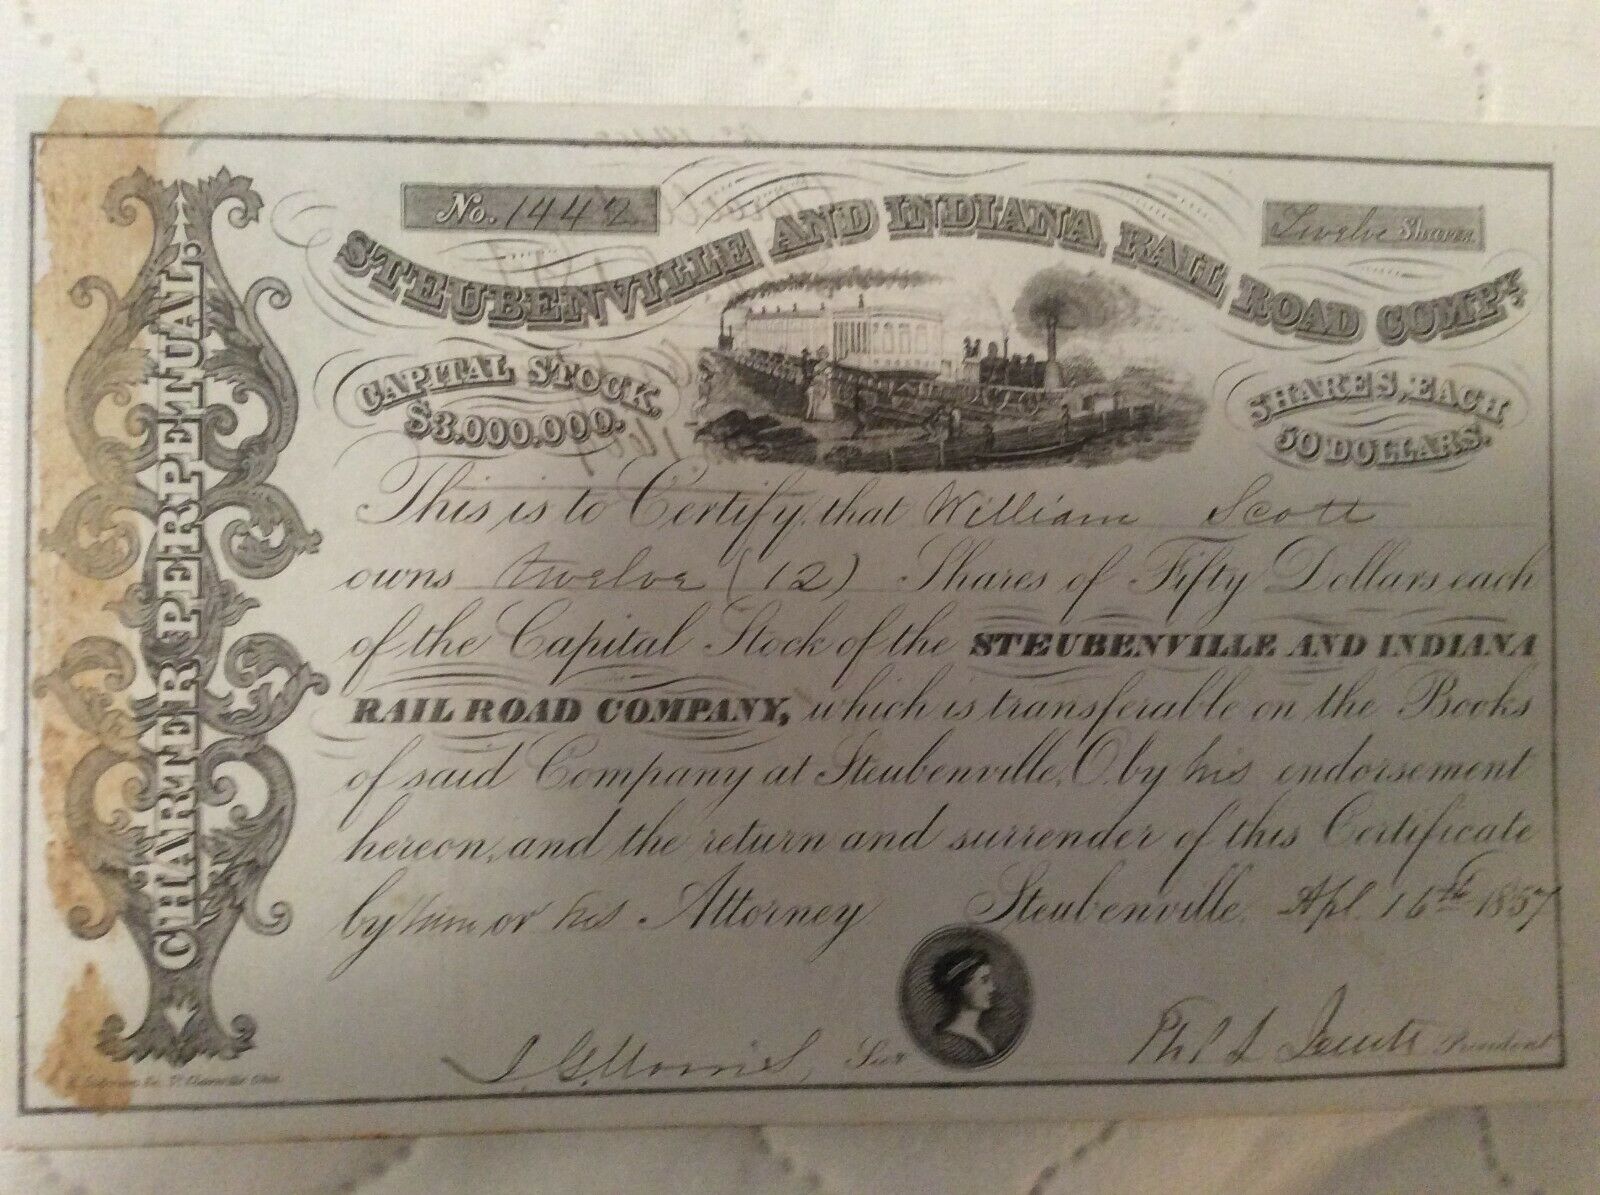 No. 1442
Twelve Shares
STEUBENVILLE AND INDIANA RAIL ROAD COMPY.
CAPITAL STOCK,
$3.000,000.
SHARES, EACH
50 DOLLARS.
CHARTER PERPETUAL.
This is to Certify, that William Scott
owns twelve (12) Shares of Fifty Dollars each
of the Capital Stock of the STEUBENVILLE AND INDIANA
RAIL ROAD COMPANY, which is transferable on the Books
of said Company at Steubenville, O. by his endorsement
hereon, and the return and surrender of this Certificate
by him or his Attorney Steubenville, Apl. 16th 1857
Morris, Secr
President